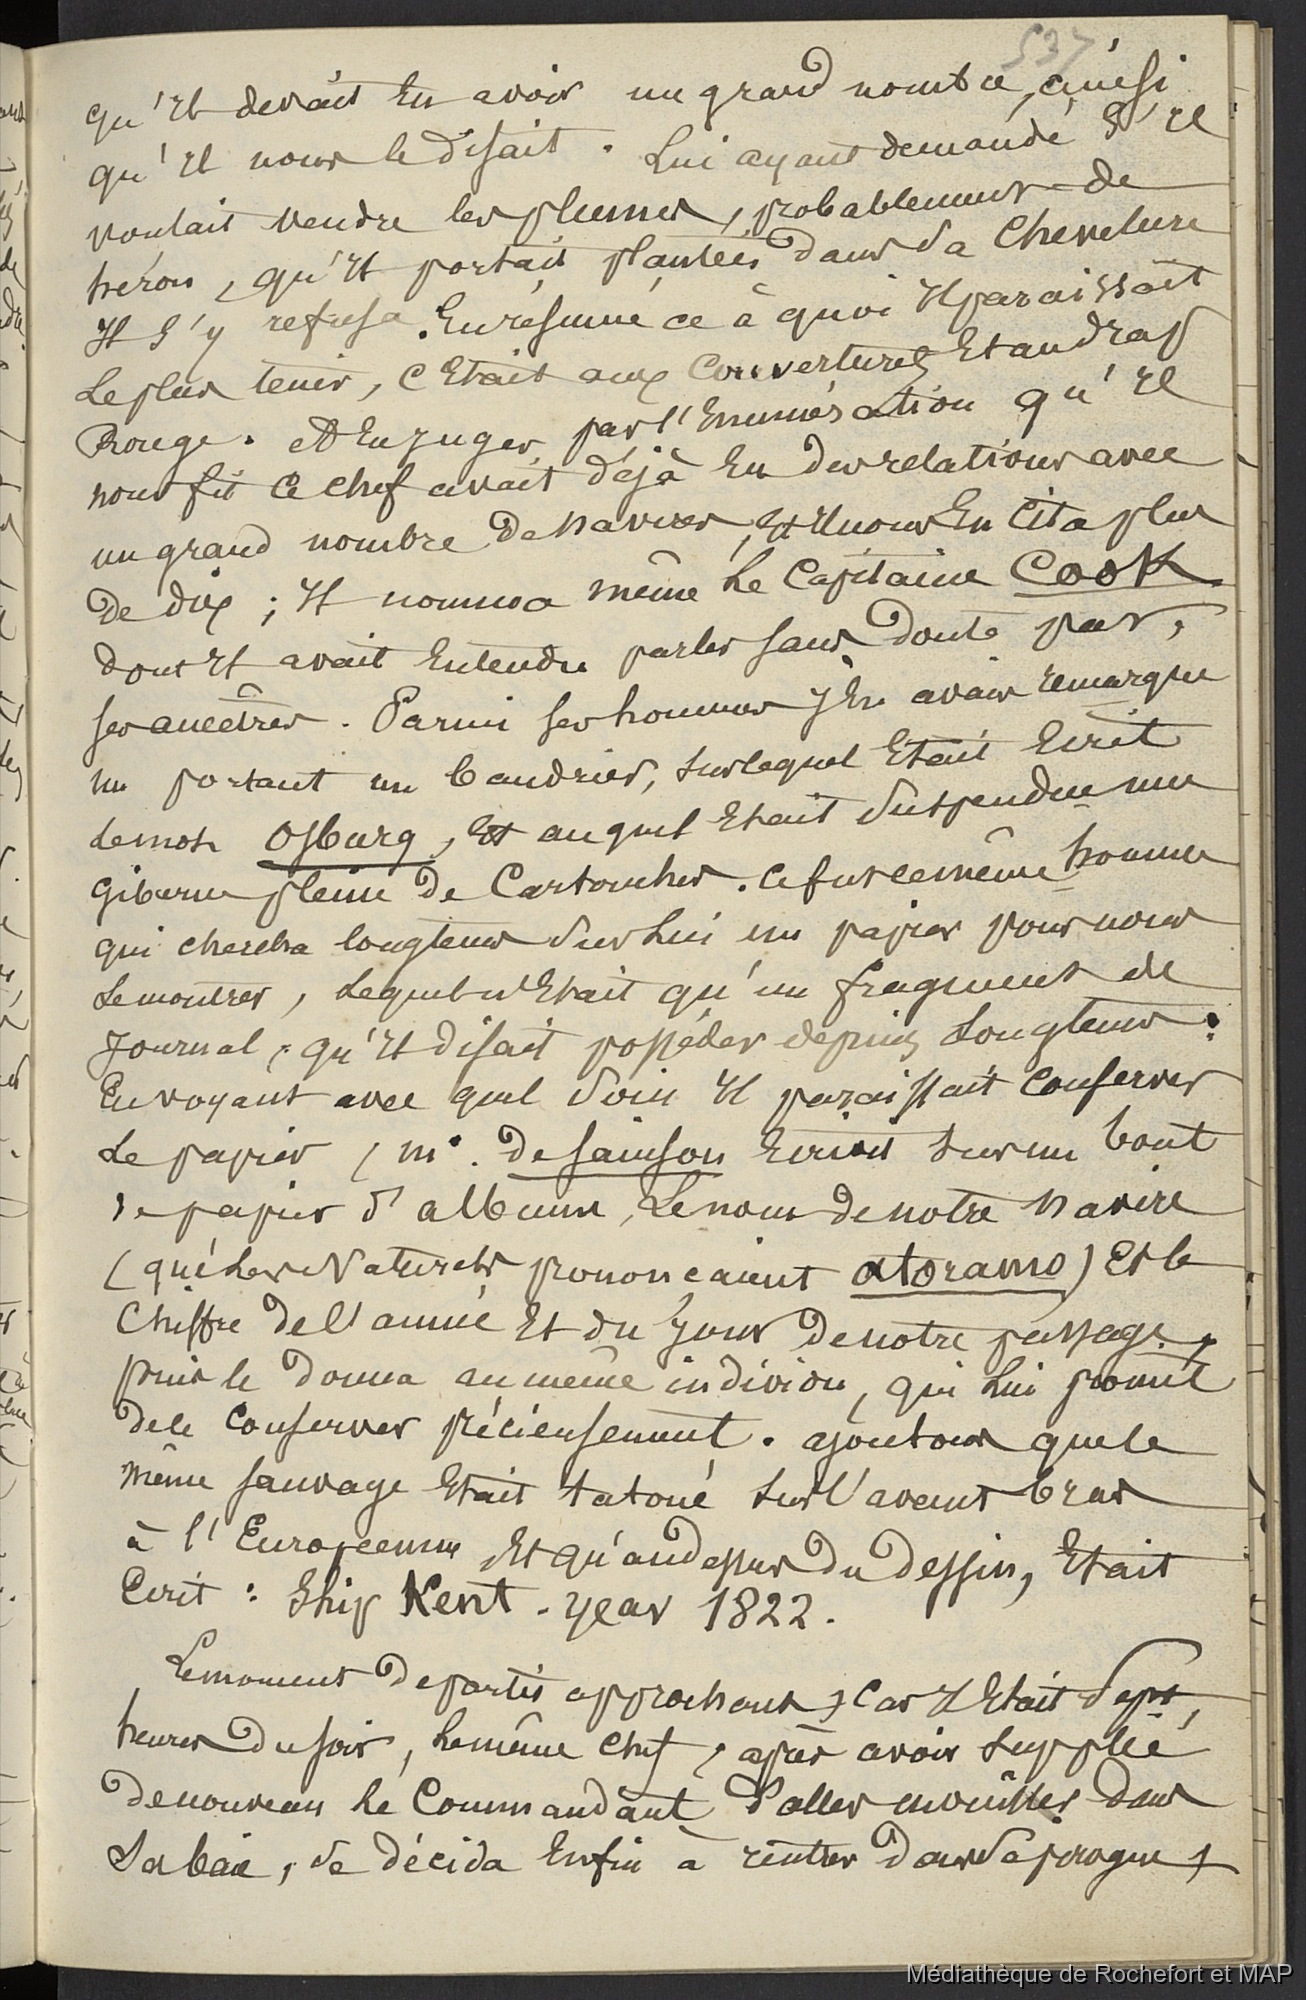 537
qu'il devait En avoir un grand nombre, ainsi
qu'il nous le disait. Lui ayant demandé S'il
voulait vendre les plumes, probablement de
héron, qu'il portait plantées dans Sa Chevelure
Il S'y refusa. En résumé ce à quoi Il paraissait
Le plus tenir, C'Etait aux Couvertures Et au drap
Rouge. Et En juger par l'Enumération qu'il
nous fit Ce chef avait déjà Eu des relations avec
un grand nombre De Navires, Et Il nous En Cita plus
De dix ; Il nomma même Le Capitaine Cook
dont Il avait Entendu parler sans Doute par,
ses ancêtres. Parmi ses hommes j'En avais remarqué
un portant un baudrier, sur lequel Etait Ecrit
Le mot Osburg, Et auquel Etait Suspendue une
Giberne pleine De Cartouches. Ce fut ce même homme
qui chercha longtems Sur Lui un papier pour nous
Le montrer, Lequel n'Etait qu'un fragment de
Journal, qu'Il disait posséder depuis Longtems :
En voyant avec quel Soin Il paraissait Conserver
Le papier, M. De Sainson Ecrivit sur un bout
De papier d'album, Le nom de notre Navire
(que Les Naturels prononçaient atoramo) Et le
Chiffre De l'année Et du Jour De notre passage,
puis le Donna au même individu, qui Lui promit
De le Conserver précieusement. ajoutons que le
même sauvage Etait tatoué sur l'avant bras
à l'Européenne Et qu'au dessus Du Dessin, Etait
Ecrit : Ship Kent - year 1822.
Le moment De partir approchant, Car Il Etait Sept,
heures Du soir, Le même Chef, après avoir supplié
De nouveau Le Commandant D'aller mouiller Dans
La baie, Se décida Enfin à rentrer Dans Sa pirogue,
Médiathèque de Rochefort et MAP